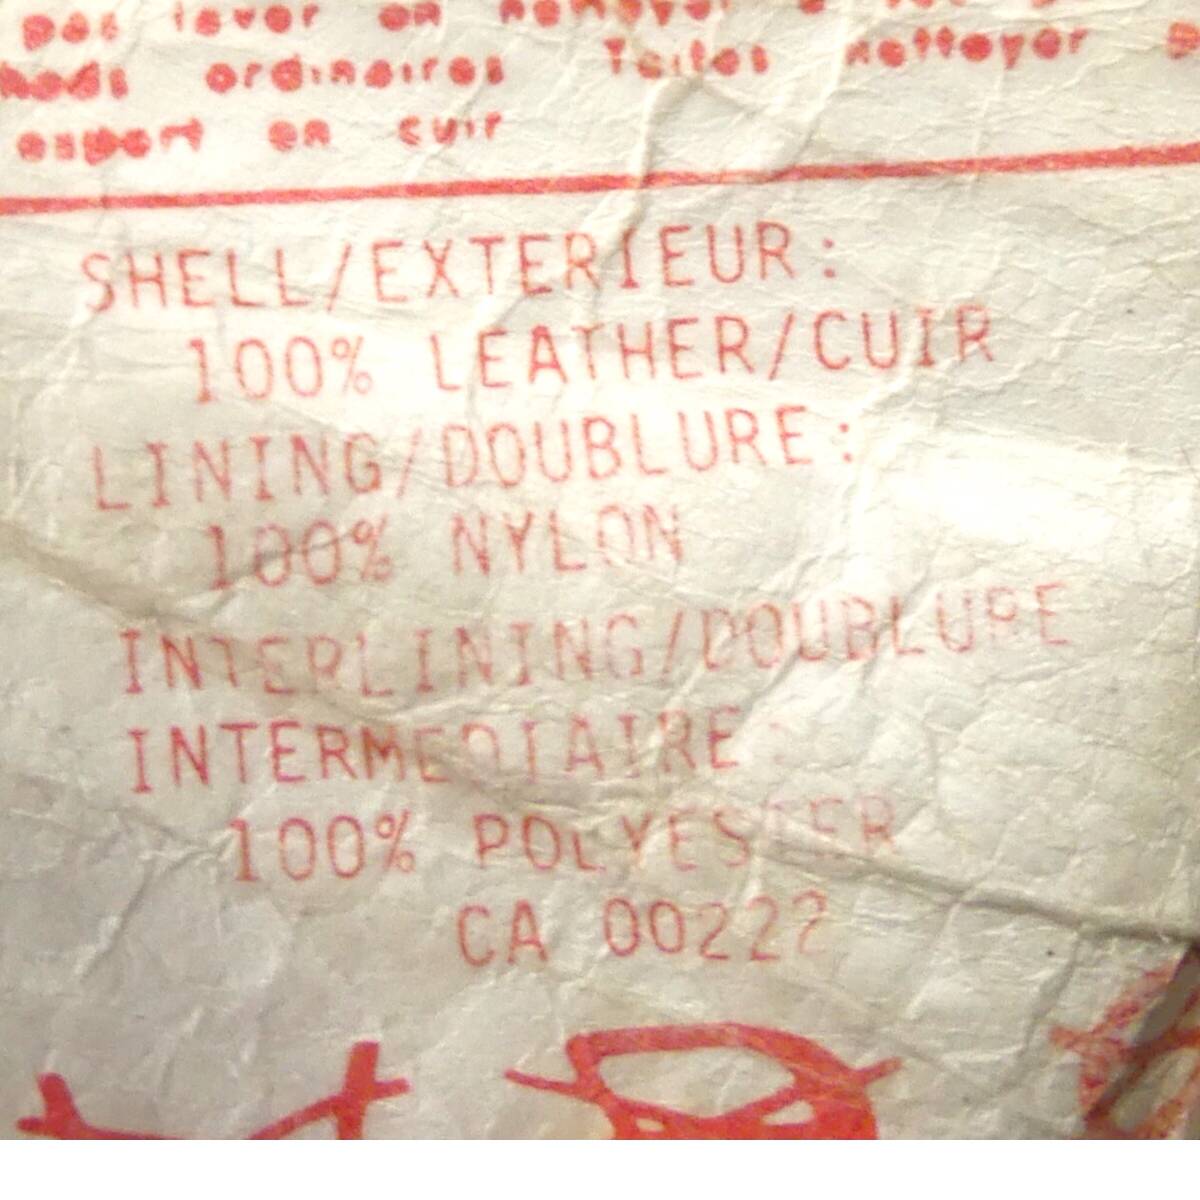 pas laver ou nettoyer
ordinaires Faites nettoyer
expert en cuir
SHELL/EXTERIEUR:
100% LEATHER/CUIR
LINING/DOUBLURE:
100% NYLON
INTERLINING/DOUBLURE
INTERMEDIAIRE:
100% POLYESTER
CA 00222